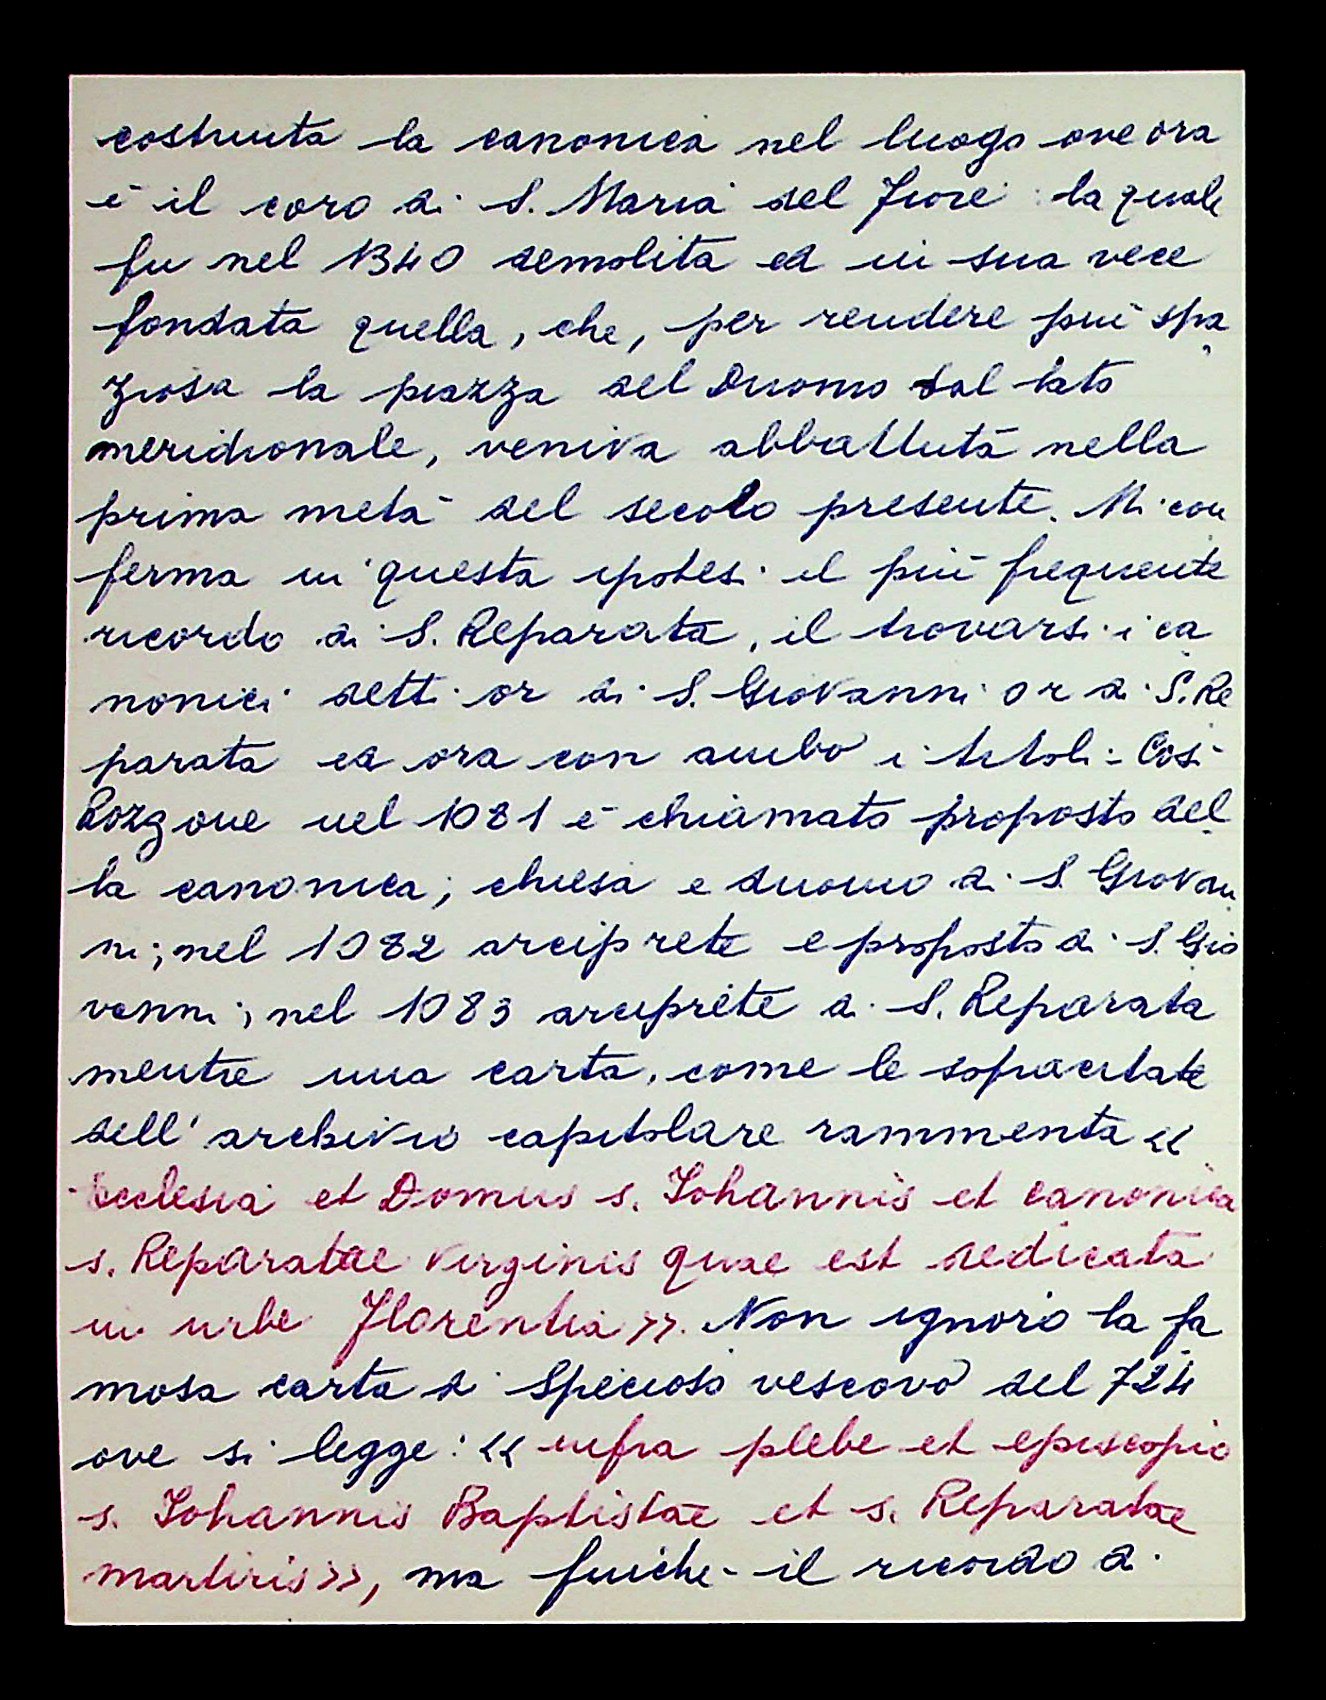 costruita la canonica nel luogo ove ora
è il coro di S. Maria del Fiore: la quale
fu nel 1340 demolita ed in sua vece
fondata quella, che, per rendere più spa
ziosa la piazza del Duomo dal lato
meridionale, veniva abbattuta nella
prima metà del secolo presente. Mi con
ferma in questa ipotesi il più frequente
ricordo di S. Reparata, il trovarsi i ca
nonici detti or di S. Giovanni or di S. Re
parata ed ora con ambo i titoli: Così
Rozzone nel 1081 è chiamato proposto del
la canonica; chiesa e duomo di S. Giovan
ni; nel 1082 arciprete e proposto di S. Gio
vanni; nel 1083 arciprete di S. Reparata
mentre una carta, come le sopracitate
dell'archivio capitolare rammenta «
Ecclesia et Domus s. Iohannis et canonica
s. Reparatae Virginis quae est dedicata
in urbe Florentia». Non ignoro la fa
mosa carta di Specioso vescovo del 724
ove si legge: « infra plebe et episcopio
s. Iohannis Baptistae et s. Reparatae
martiris», ma finchè il ricordo di